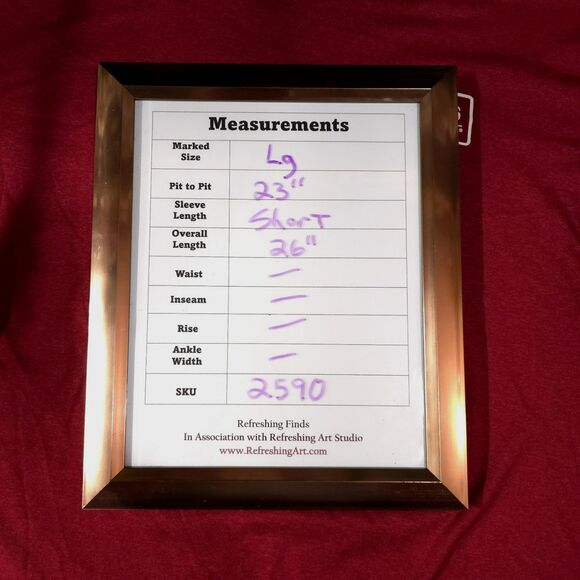 Measurements
Marked Size Lg
Pit to Pit 23"
Sleeve Length Short
Overall Length 26"
Waist —
Inseam —
Rise —
Ankle Width —
SKU 2590
Refreshing Finds
In Association with Refreshing Art Studio
www.RefreshingArt.com